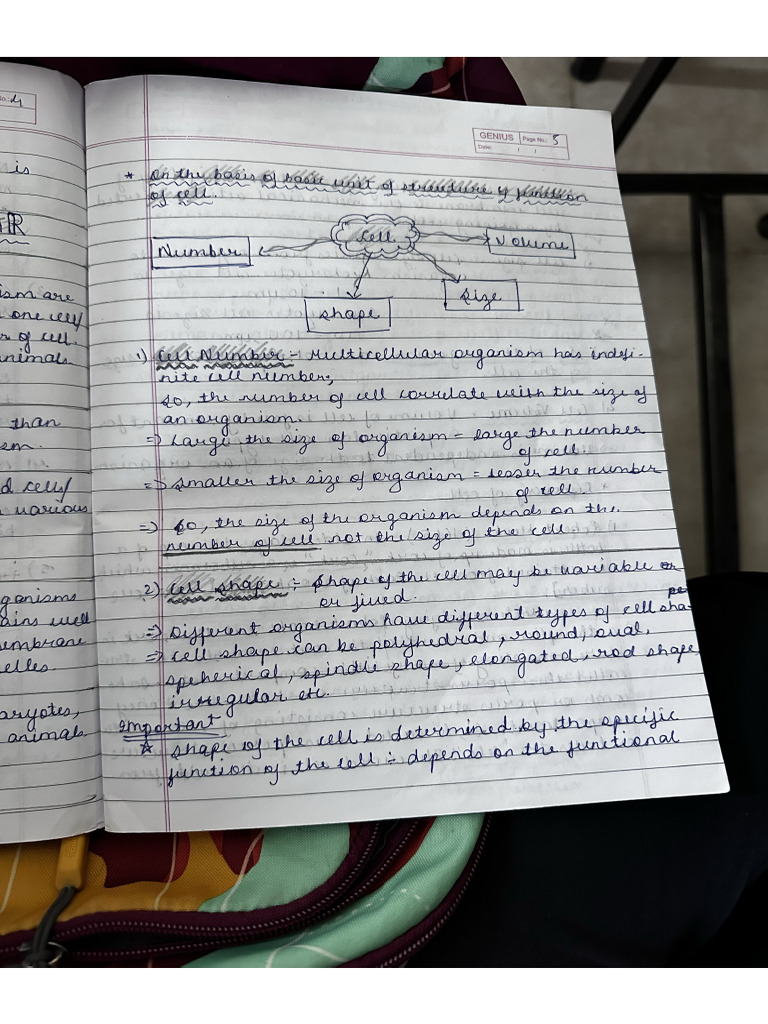 o.: 4
is
R
ism are
one cell/
r of cell.
nimals.
than
sm.
d cell/
various
ganisms
ains well
embrane
elles
aryotes,
animals.
GENIUS Page No.: 5
Date: / /
* On the basis of basic unit of structure & function
of cell.
Cell
Number
Volume
Shape
Size
1) Cell Number :- Multicellular organism has indefi-
nite cell number,
So, the number of cell correlate with the size of
an organism.
=> Large the size of organism = large the number
of cell.
=> Smaller the size of organism = lesser the number
of cell.
=> So, the size of the organism depends on the
number of cell not the size of the cell.
2) Cell Shape :- Shape of the cell may be variable or
or fixed.
=> Different organisms have different types of cell sha-
pe
=> Cell shape can be polyhedral, round, oval,
speherical, spindle shape, elongated, rod shape,
irregular etc.
Important
☆ Shape of the cell is determined by the specific
function of the cell :- depends on the functional